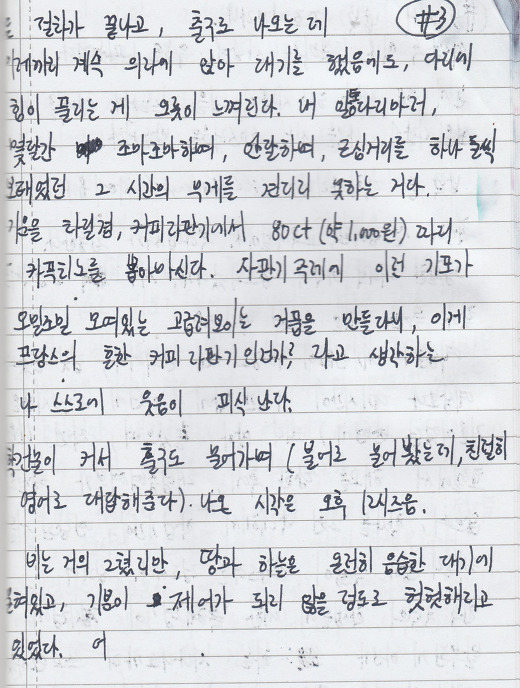 #3
절차가 끝나고, 출구로 나오는데
계속 의자에 앉아 대기를 했음에도, 다리에
힘이 풀리는 게 오롯이 느껴진다. 내 몸통다리마저,
몇달간 조마조마하며, 안달하며, 근심거리를 하나 둘씩
보태었던 그 시간의 무게를 견디지 못하는 거다.
기운을 차릴겸, 커피자판기에서 80ct (약 1,000원) 짜리
카푸치노를 뽑아마신다. 자판기 주제에 이런 기포가
오밀조밀 모여있는 고급져보이는 거품을 만들다니, 이게
프랑스의 흔한 커피자판기인건가? 라고 생각하는
나 스스로에 웃음이 피식 난다.
건물이 커서 출구도 물어가며 (불어로 물어봤는데, 친절히
영어로 대답해준다). 나온 시각은 오후 12시즈음.
비는 거의 그쳤지만, 땅과 하늘은 온전히 음습한 대기에
있고, 기분이 제어가 되지 않을 정도로 헛헛해지고
있었다. 어